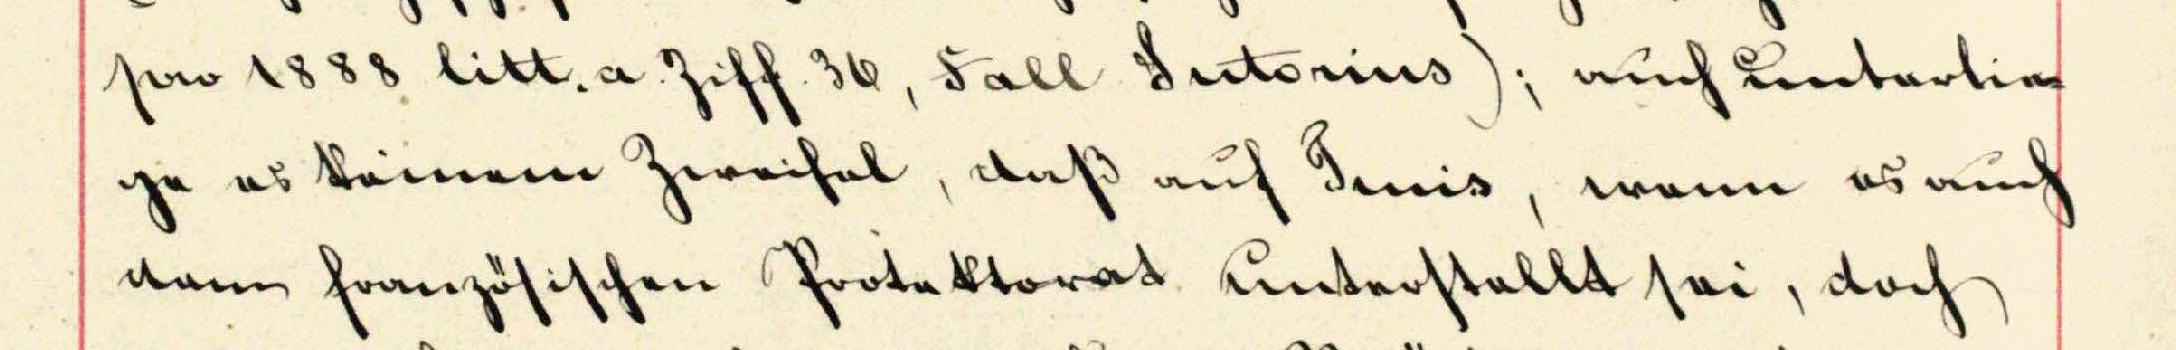 pro 1888 litt. a Ziff. 36, Fall Sutorius); auch unterlie=
ge es keinem Zweifel, daß auf Tunis, wenn es auch
dem französischen Protektorat unterstellt sei, doch